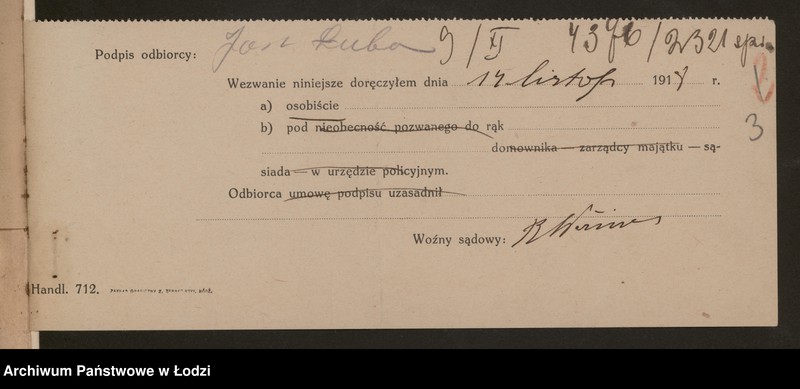 Podpis odbiorcy: 9/XI 4376/2321
Wezwanie niniejsze doręczyłem dnia 14 listop 1918 r.
a) osobiście
b) pod nieobecność pozwanego do rąk
domownika — zarządcy majątku — są-
3
siada — w urzędzie policyjnym.
Odbiorca umowę podpisu uzasadnił
Woźny sądowy:
Handl. 712.
Archiwum Państwowe w Łodzi